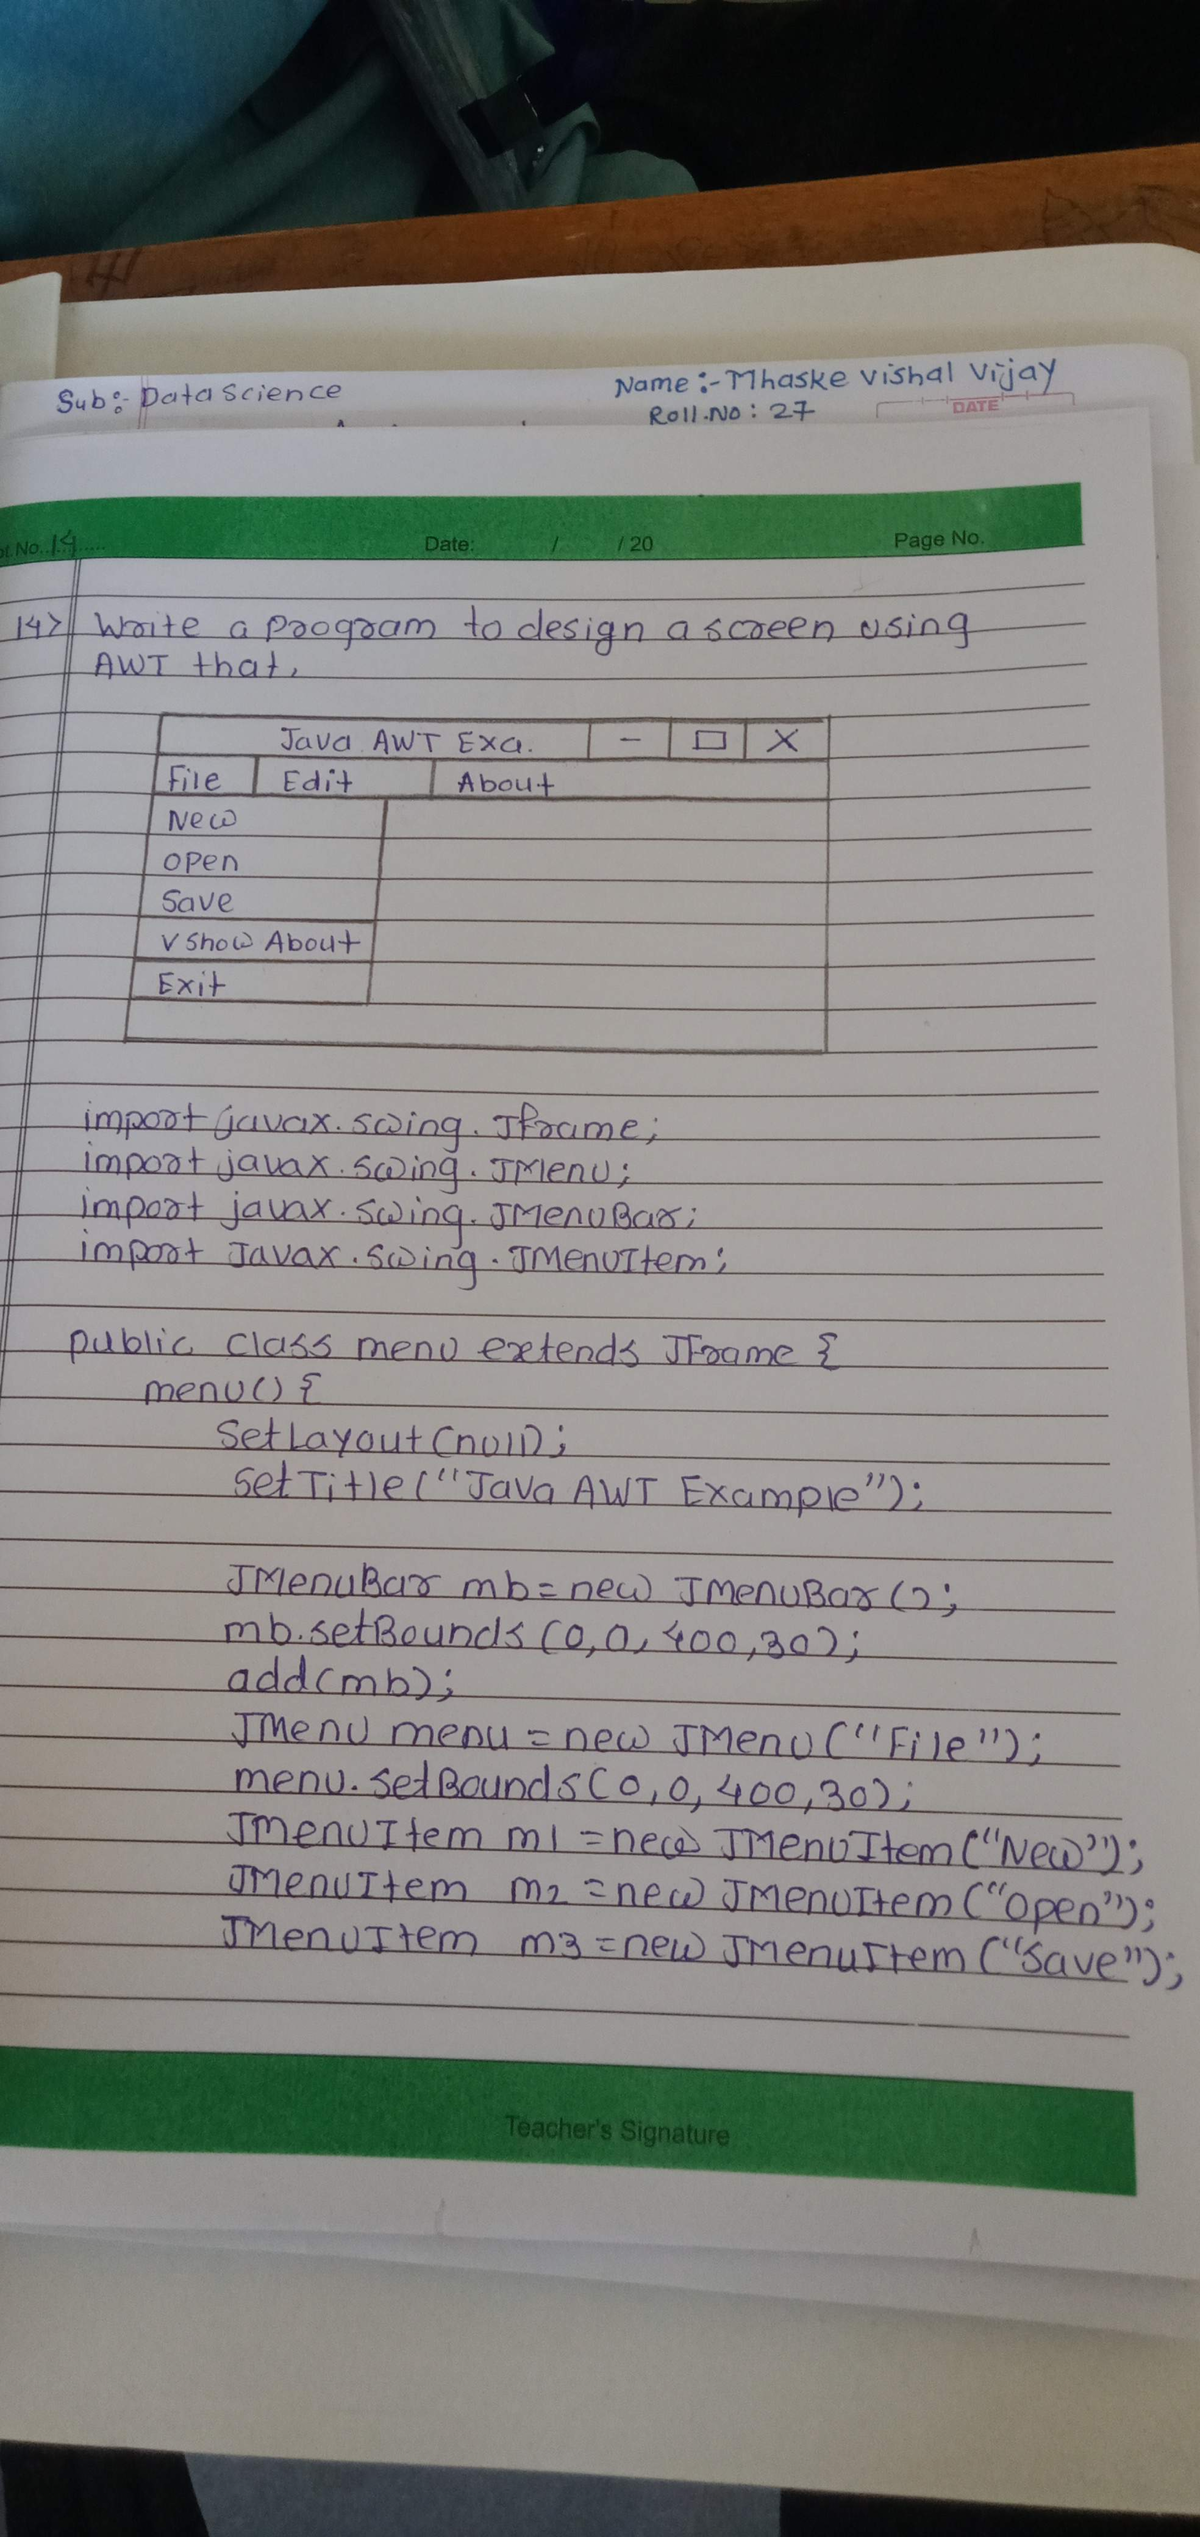 Sub:- Data Science
Name:- Mhaske Vishal Vijay
Roll.No: 27
DATE
pt.No. 14
Date: / / 20
Page No.
14> Write a program to design a screen using
AWT that,
Java AWT Exa. - □ X
File Edit About
New
open
Save
v Show About
Exit
import javax.swing.Jframe;
import javax.swing.JMenu;
import javax.swing.JMenuBar;
import Javax.swing.JMenuItem;
public class menu extends JFrame {
menu() {
SetLayout(null);
setTitle("Java AWT Example");
JMenuBar mb=new JMenuBar();
mb.setBounds(0,0,400,30);
add(mb);
JMenu menu = new JMenu("File");
menu.setBounds(0,0,400,30);
JmenuItem m1 =new JMenuItem("New");
JMenuItem m2 =new JMenuItem("Open");
JMenuItem m3 =new JMenuItem("Save");
Teacher's Signature